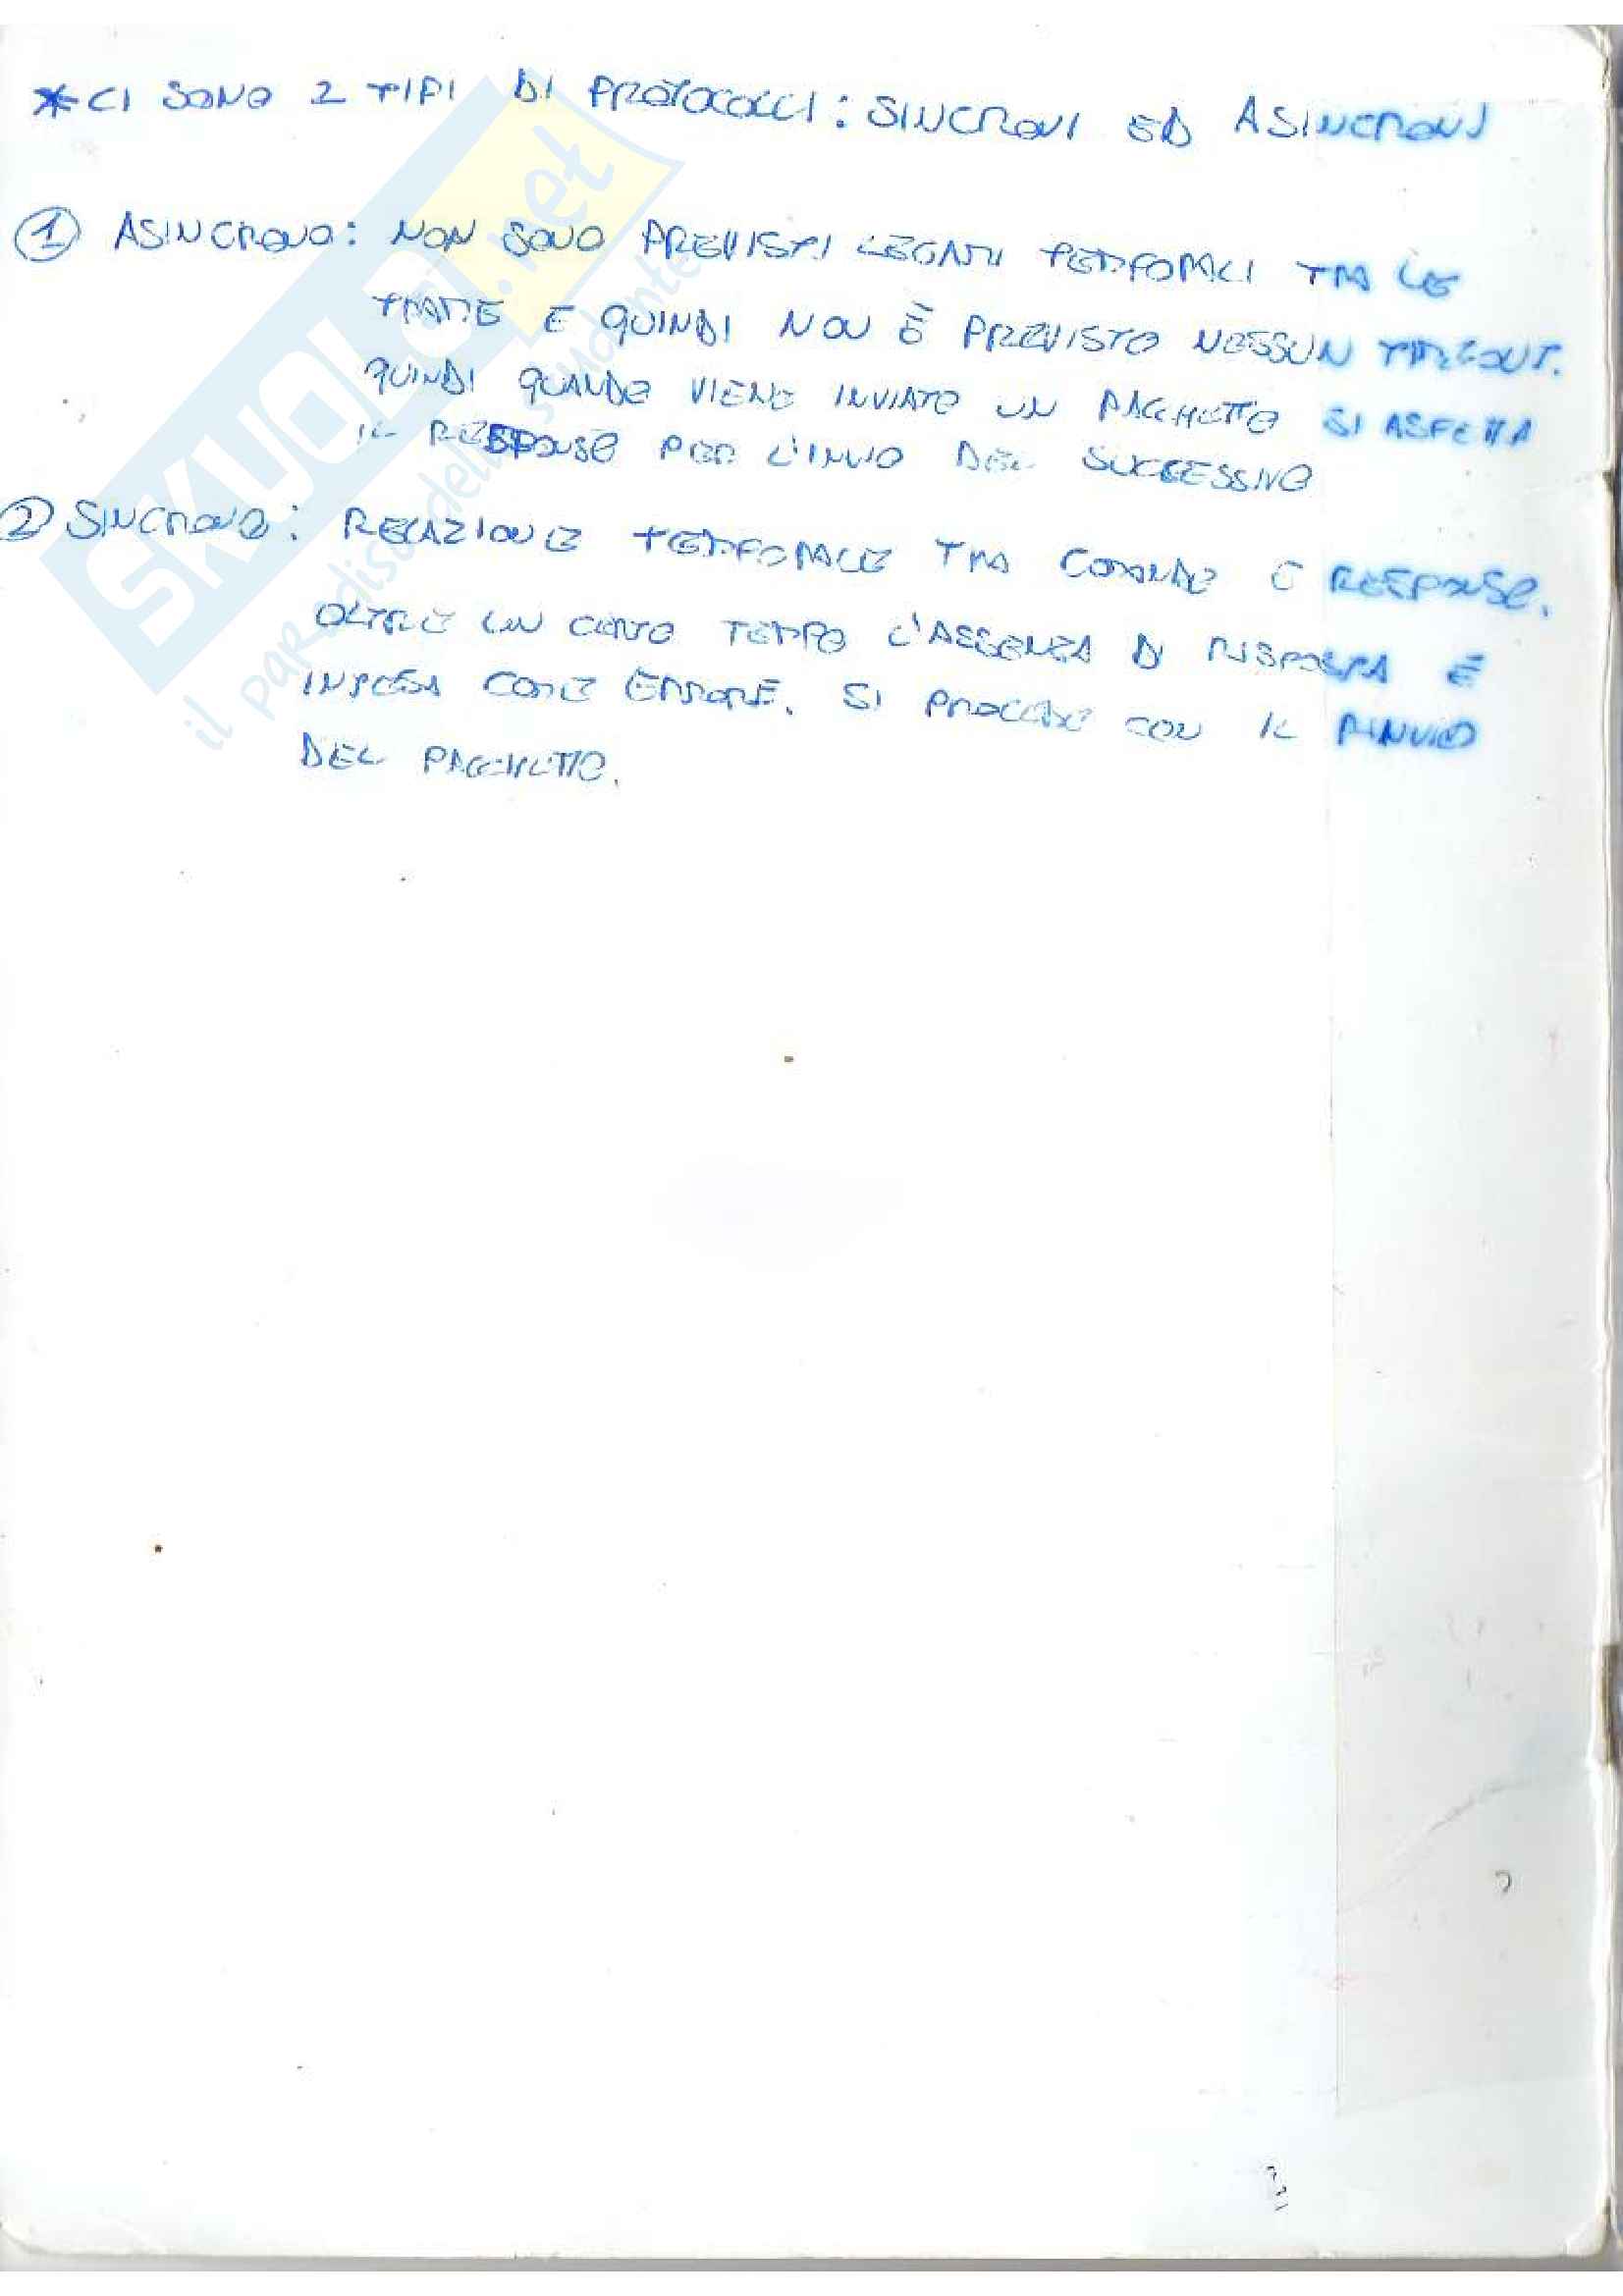 *CI SONO 2 TIPI DI PROTOCOLLI: SINCRONI ED ASINCRONI
① ASINCRONO: NON SONO PREVISTI LEGAMI TEMPORALI TRA LE
TRAME E QUINDI NON È PREVISTO NESSUN TIMEOUT.
QUINDI QUANDO VIENE INVIATO UN PACCHETTO SI ASPETTA
IL RESPONSE PER L'INVIO DEL SUCCESSIVO
② SINCRONO: RELAZIONE TEMPORALE TRA COMANDO E RESPONSE.
OLTRE UN CERTO TEMPO L'ASSENZA DI RISPOSTA È
INTESA COME ERRORE. SI PROCEDE CON IL RINVIO
DEL PACCHETTO.
SKUOLA.net
il paradiso dello studente